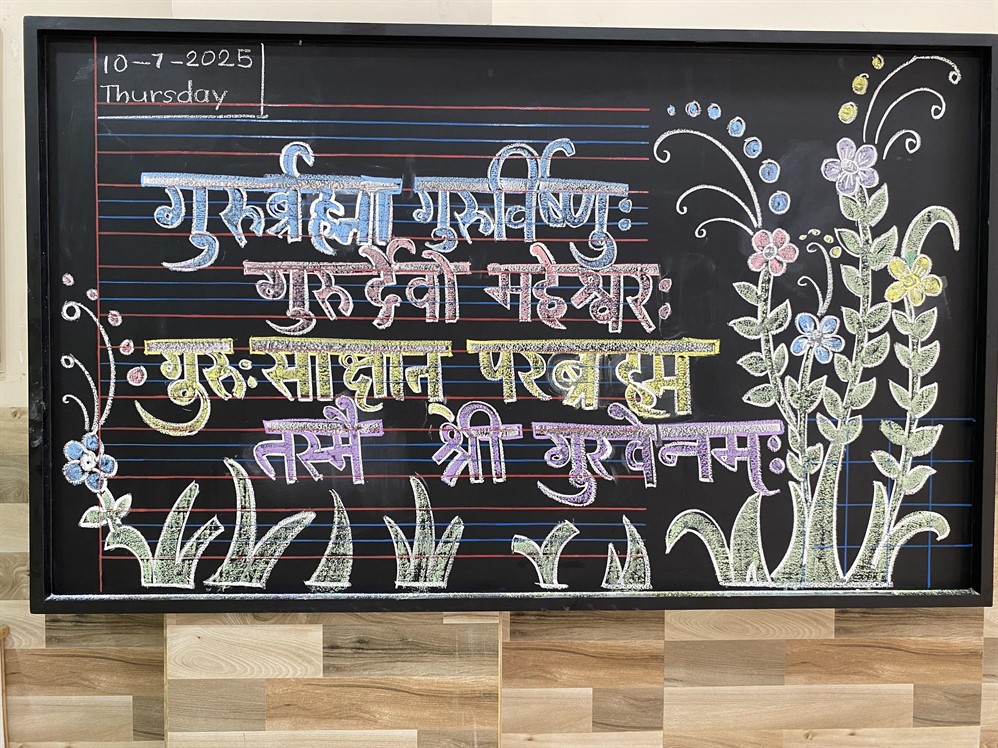 10-7-2025
Thursday
गुरुर्ब्रह्मा गुरुर्विष्णुः
गुरु र्देवो महेश्वरः
गुरुः साक्षान परब्रह्म
तस्मै श्री गुरवेनमः